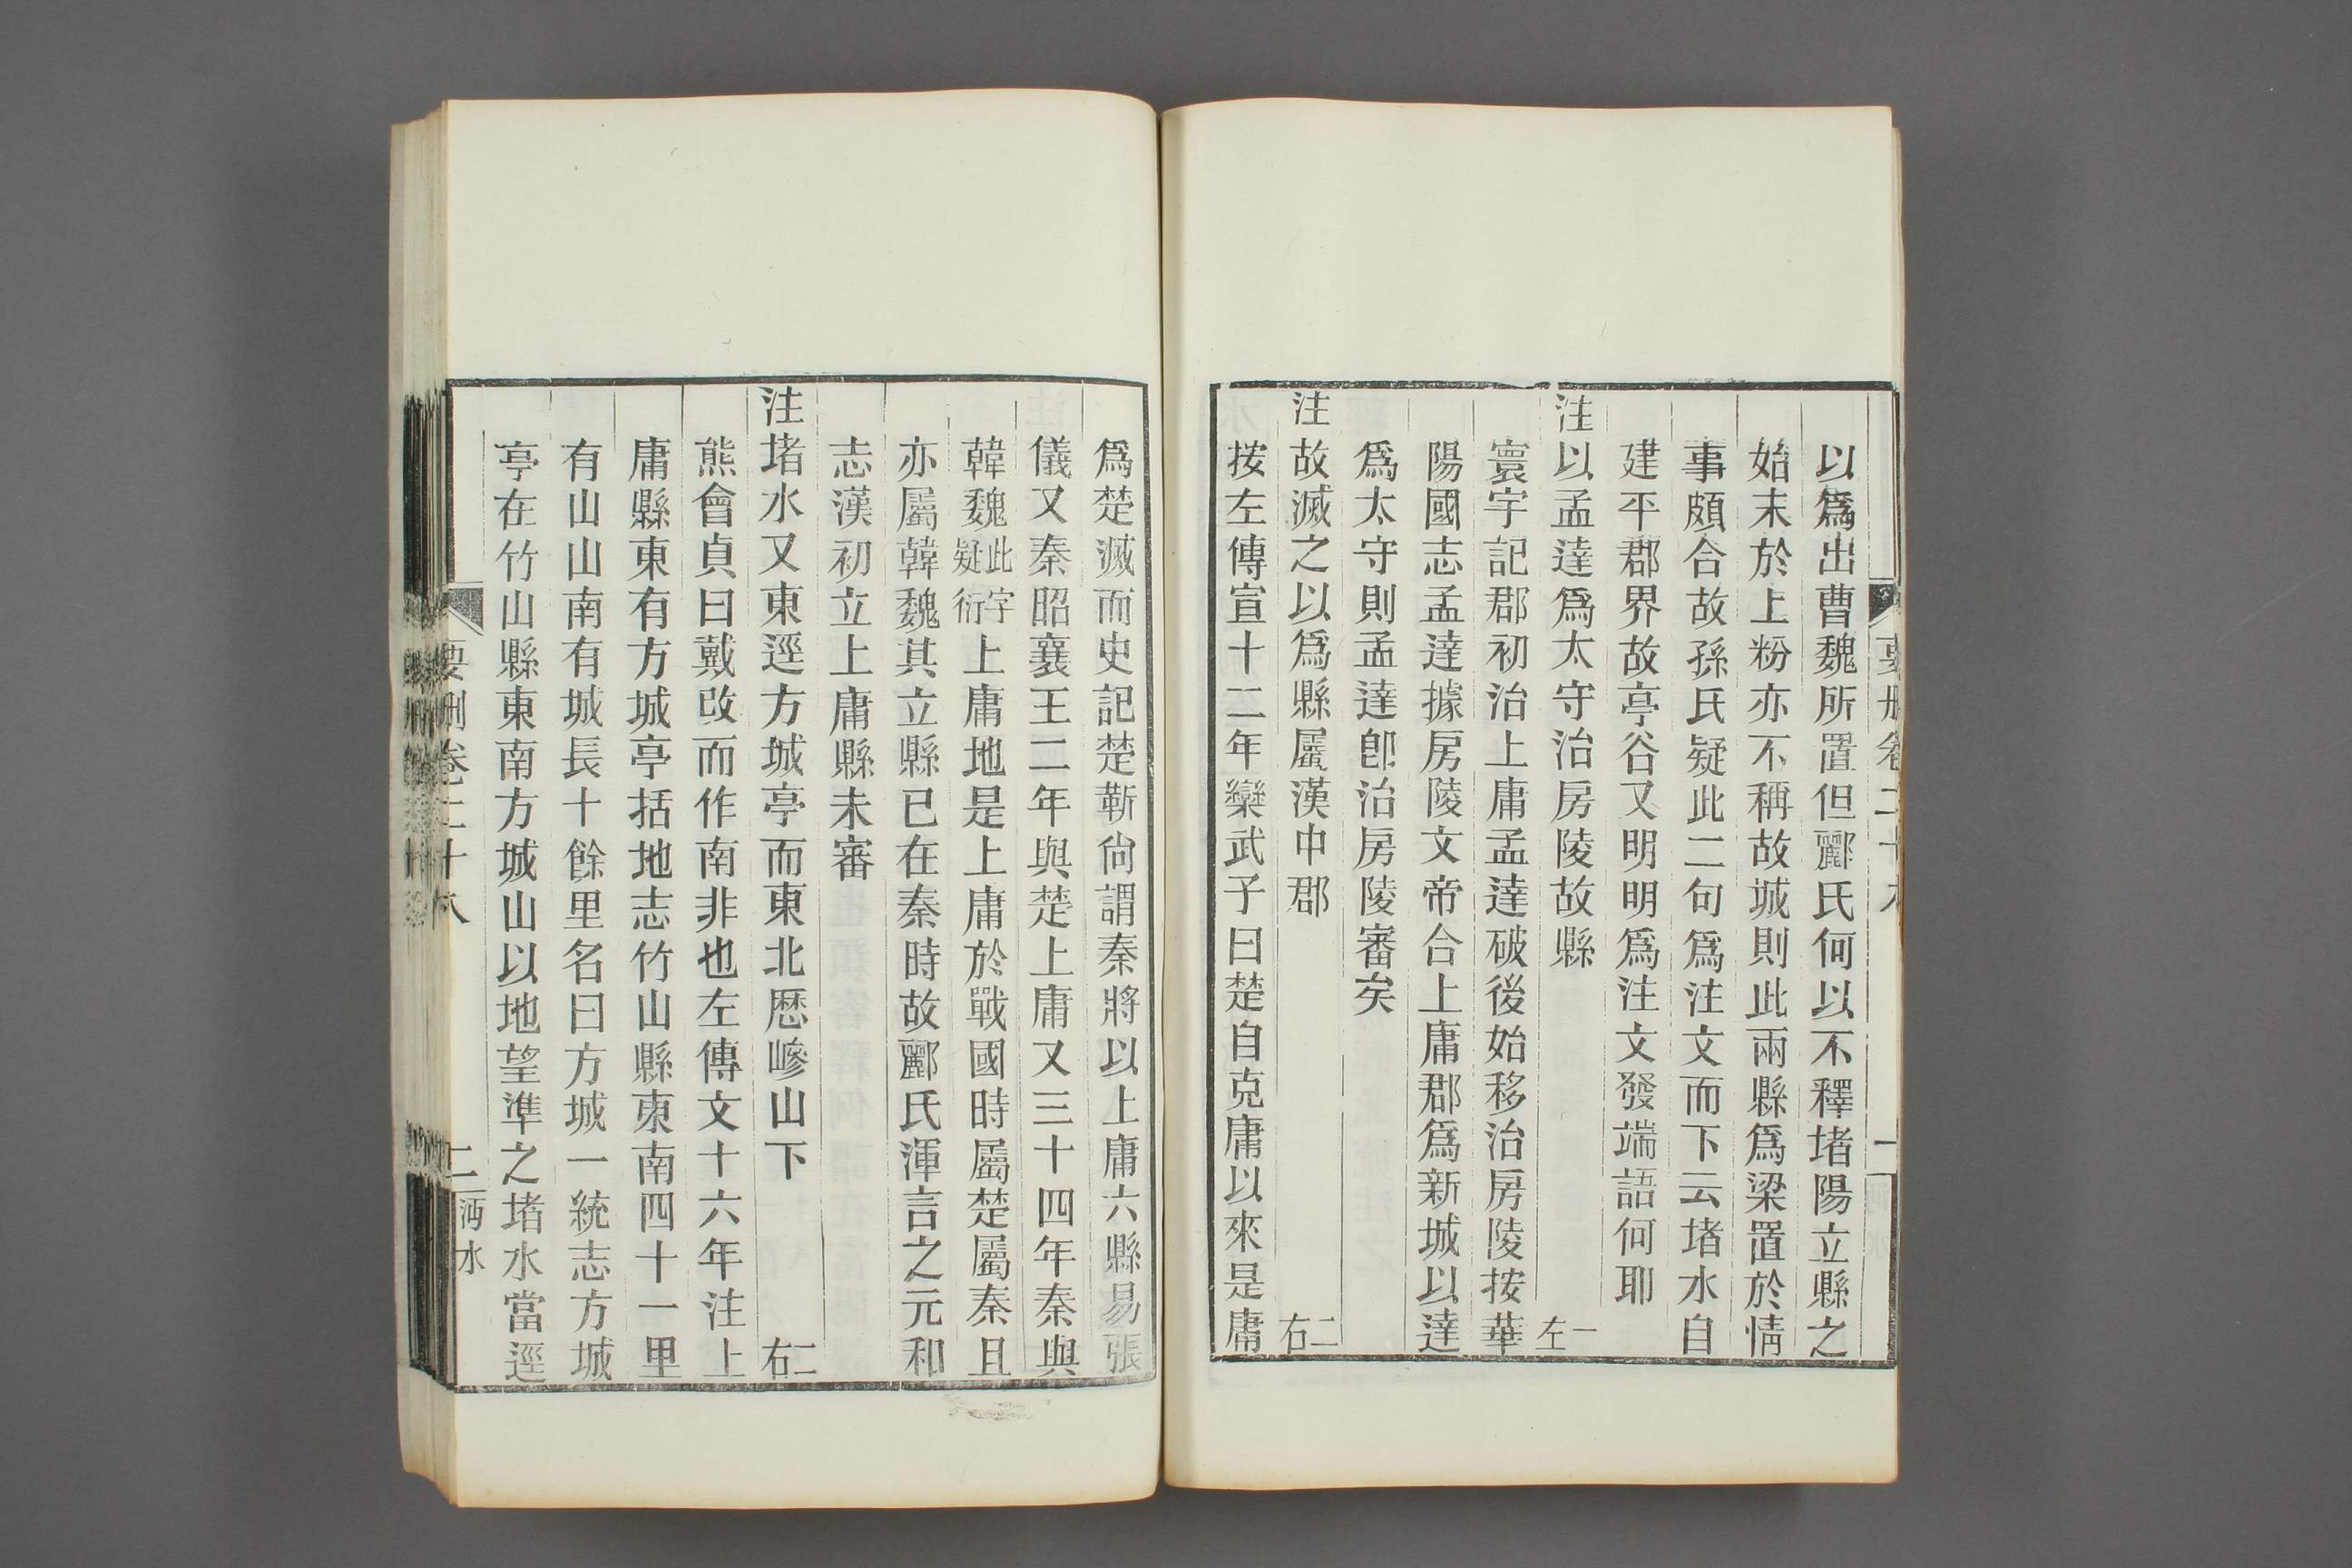 以爲出曹魏所置但酈氏何以不釋堵陽立縣之
始末於上粉亦不稱故城則此兩縣爲梁置於情
事頗合故孫氏疑此二句爲注文而下云堵水自
建平郡界故亭谷又明明爲注文發端語何耶
注以孟達爲太守治房陵故縣 一左
寰宇記郡初治上庸孟達破後始移治房陵按華
陽國志孟達據房陵文帝合上庸郡爲新城以達
爲太守則孟達卽治房陵審矣
注故滅之以爲縣屬漢中郡 二右
按左傳宣十二年欒武子曰楚自克庸以來是庸
爲楚滅而史記楚靳尙謂秦將以上庸六縣易張
儀又秦昭襄王二年與楚上庸又三十四年秦與
韓魏此字疑衍上庸地是上庸於戰國時屬楚屬秦且
亦屬韓魏其立縣已在秦時故酈氏渾言之元和
志漢初立上庸縣未審
注堵水又東逕方城亭而東北歷嵾山下 二右
熊會貞曰戴改而作南非也左傳文十六年注上
庸縣東有方城亭括地志竹山縣東南四十一里
有山山南有城長十餘里名曰方城一統志方城
亭在竹山縣東南方城山以地望準之堵水當逕
要刪卷二十八 二 沔水